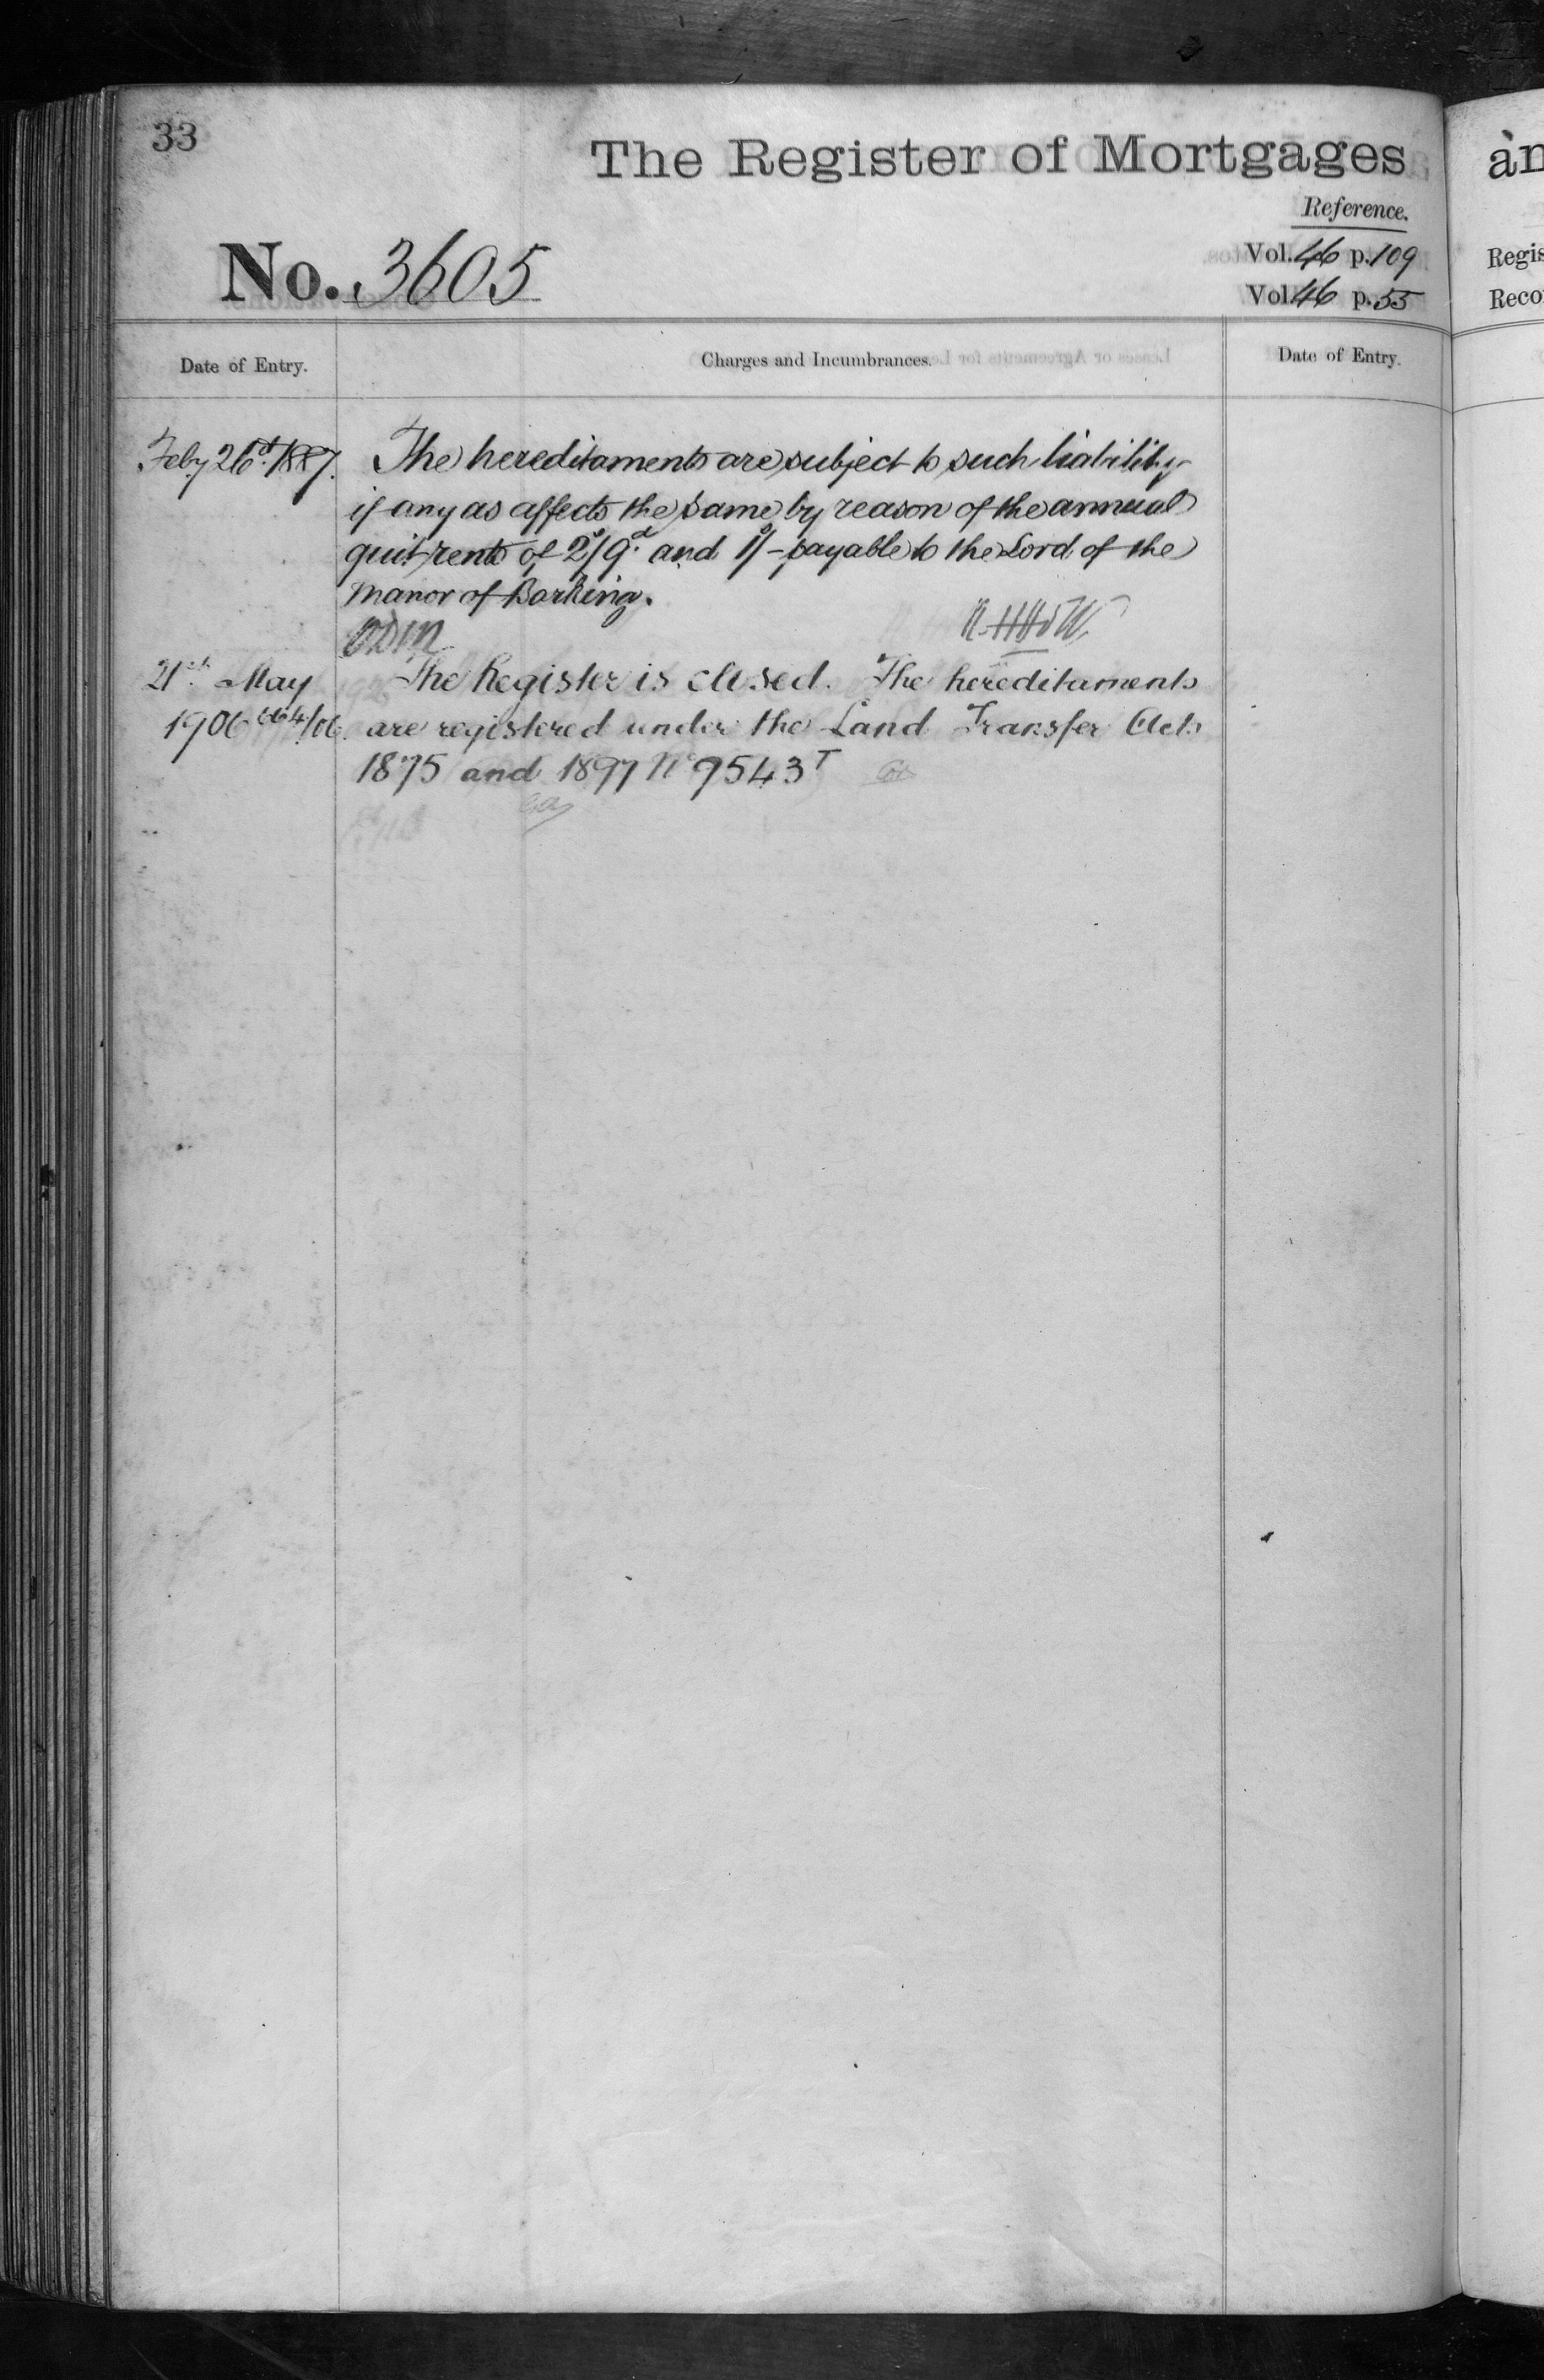 33
The Register of Mortgages
an
Reference.
No. 3605
Vol. 46 p. 109
Regis
Vol 46 p. 55
Reco
Date of Entry.
Charges and Incumbrances.
Date of Entry.
Feby 26th 1887.
The hereditaments are subject to such liability
if any as affects the same by reason of the annual
quit rents of 2s/9d. and 1s/- payable to the Lord of the
Manor of Barking.
21st May
The Register is closed. The hereditaments
1906
are registered under the Land Transfer Acts
1875 and 1897 No 9543T